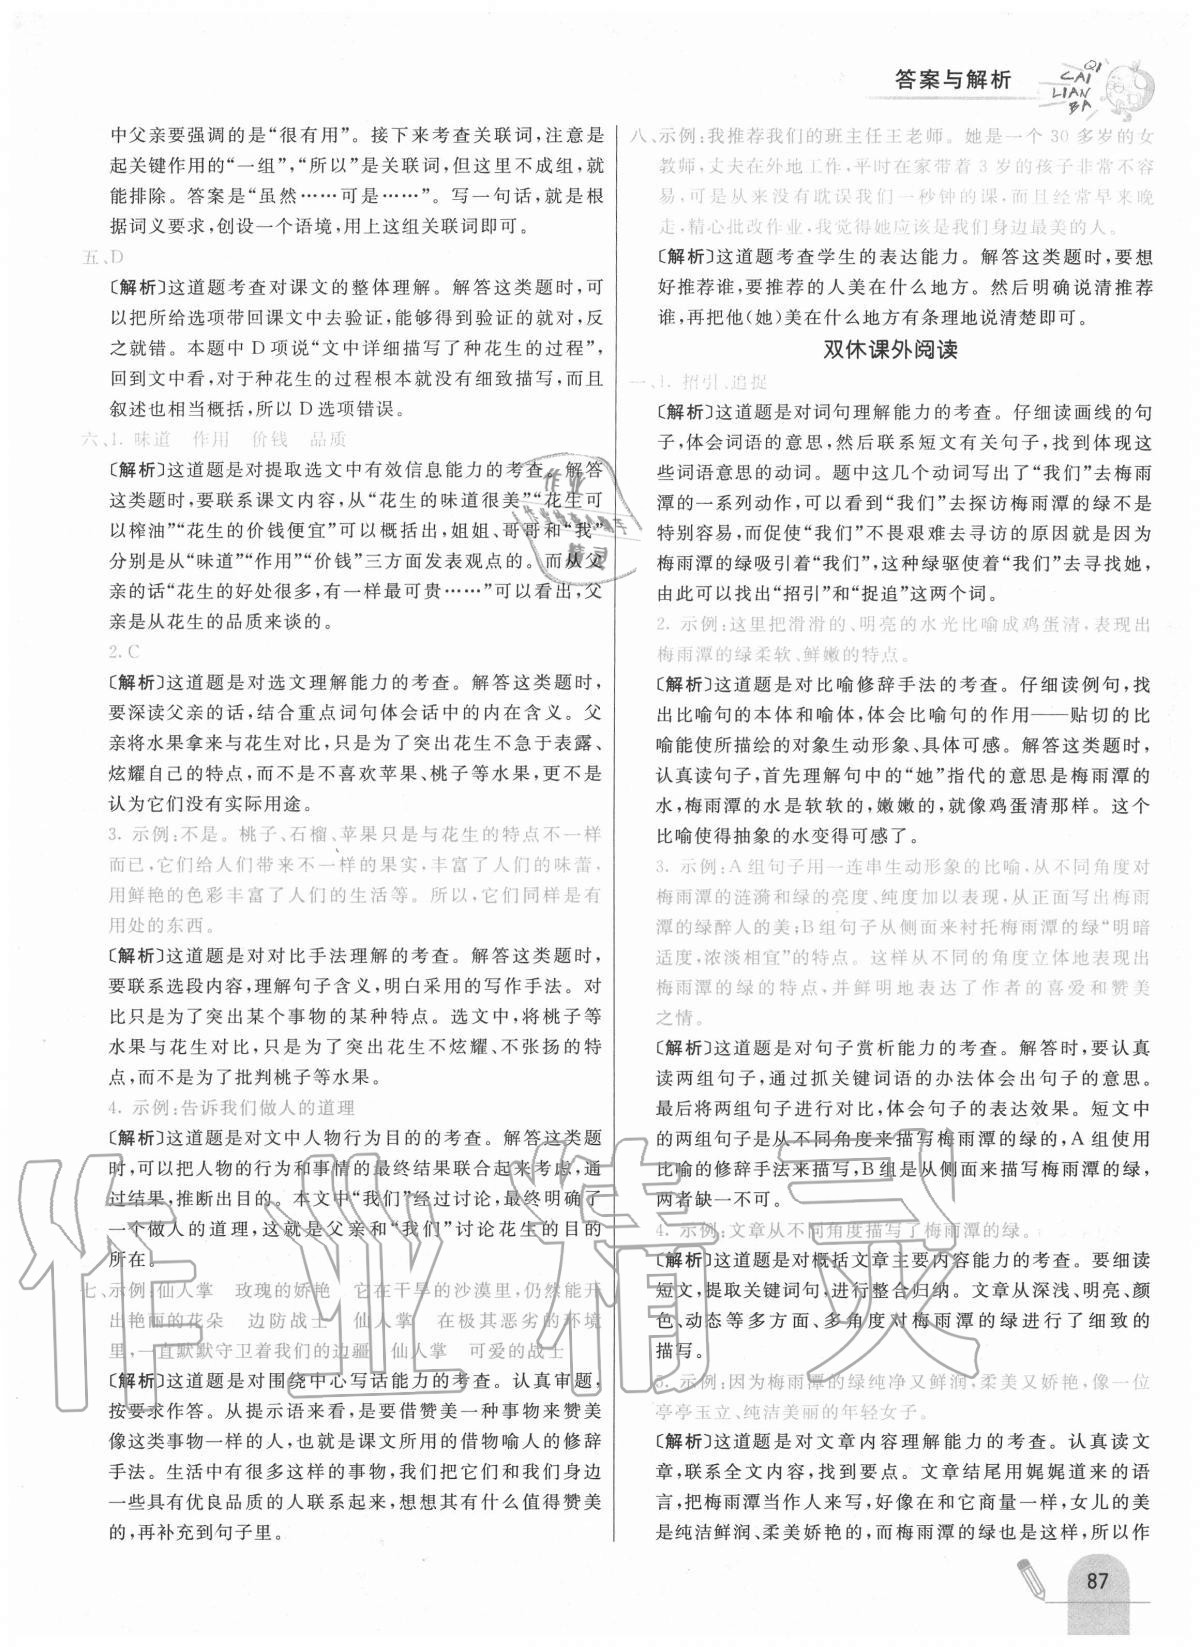 答案与解析
QI
CAI
LIAN
BA
中父亲要强调的是“很有用”。接下来考查关联词，注意是
起关键作用的“一组”，“所以”是关联词，但这里不成组，就
能排除。答案是“虽然……可是……”。写一句话，就是根
据词义要求，创设一个语境，用上这组关联词即可。
五、D
〔解析〕这道题考查对课文的整体理解。解答这类题时，可
以把所给选项带回课文中去验证，能够得到验证的就对，反
之就错。本题中 D 项说“文中详细描写了种花生的过程”，
回到文中看，对于种花生的过程根本就没有细致描写，而且
叙述也相当概括，所以 D 选项错误。
六、1. 味道　作用　价钱　品质
〔解析〕这道题是对提取选文中有效信息能力的考查。解答
这类题时，要联系课文内容，从“花生的味道很美”“花生可
以榨油”“花生的价钱便宜”可以概括出，姐姐、哥哥和“我”
分别是从“味道”“作用”“价钱”三方面发表观点的。而从父
亲的话“花生的好处很多，有一样最可贵……”可以看出，父
亲是从花生的品质来谈的。
2. C
〔解析〕这道题是对选文理解能力的考查。解答这类题时，
要深读父亲的话，结合重点词句体会话中的内在含义。父
亲将水果拿来与花生对比，只是为了突出花生不急于表露、
炫耀自己的特点，而不是不喜欢苹果、桃子等水果，更不是
认为它们没有实际用途。
3. 示例：不是。桃子、石榴、苹果只是与花生的特点不一样
而已，它们给人们带来不一样的果实，丰富了人们的味蕾，
用鲜艳的色彩丰富了人们的生活等。所以，它们同样是有
用处的东西。
〔解析〕这道题是对对比手法理解的考查。解答这类题时，
要联系选段内容，理解句子含义，明白采用的写作手法。对
比只是为了突出某个事物的某种特点。选文中，将桃子等
水果与花生对比，只是为了突出花生不炫耀、不张扬的特
点，而不是为了批判桃子等水果。
4. 示例：告诉我们做人的道理
〔解析〕这道题是对文中人物行为目的的考查。解答这类题
时，可以把人物的行为和事情的最终结果联合起来考虑，通
过结果，推断出目的。本文中“我们”经过讨论，最终明确了
一个做人的道理，这就是父亲和“我们”讨论花生的目的
所在。
七、示例：仙人掌　玫瑰的娇艳　它在干旱的沙漠里，仍然能开
出艳丽的花朵　边防战士　仙人掌　在极其恶劣的环境
里，一直默默守卫着我们的边疆　仙人掌　可爱的战士
〔解析〕这道题是对围绕中心写话能力的考查。认真审题，
按要求作答。从提示语来看，是要借赞美一种事物来赞美
像这类事物一样的人，也就是课文所用的借物喻人的修辞
手法。生活中有很多这样的事物，我们把它们和我们身边
一些具有优良品质的人联系起来，想想其有什么值得赞美
的，再补充到句子里。
八、示例：我推荐我们的班主任王老师。她是一个 30 多岁的女
教师，丈夫在外地工作，平时在家带着 3 岁的孩子非常不容
易，可是从来没有耽误我们一秒钟的课，而且经常早来晚
走，精心批改作业，我觉得她应该是我们身边最美的人。
〔解析〕这道题考查学生的表达能力。解答这类题时，要想
好推荐谁，要推荐的人美在什么地方。然后明确说清推荐
谁，再把他（她）美在什么地方有条理地说清楚即可。
双休课外阅读
一、1. 招引、追捉
〔解析〕这道题是对词句理解能力的考查。仔细读画线的句
子，体会词语的意思，然后联系短文有关句子，找到体现这
些词语意思的动词。题中这几个动词写出了“我们”去梅雨
潭的一系列动作，可以看到“我们”去探访梅雨潭的绿不是
特别容易，而促使“我们”不畏艰难去寻访的原因就是因为
梅雨潭的绿吸引着“我们”，这种绿驱使着“我们”去寻找她，
由此可以找出“招引”和“捉追”这两个词。
2. 示例：这里把滑滑的、明亮的水光比喻成鸡蛋清，表现出
梅雨潭的绿柔软、鲜嫩的特点。
〔解析〕这道题是对比喻修辞手法的考查。仔细读例句，找
出比喻句的本体和喻体，体会比喻句的作用——贴切的比
喻能使所描绘的对象生动形象、具体可感。解答这类题时，
认真读句子，首先理解句中的“她”指代的意思是梅雨潭的
水，梅雨潭的水是软软的，嫩嫩的，就像鸡蛋清那样。这个
比喻使得抽象的水变得可感了。
3. 示例：A 组句子用一连串生动形象的比喻，从不同角度对
梅雨潭的涟漪和绿的亮度、纯度加以表现，从正面写出梅雨
潭的绿醉人的美；B 组句子从侧面来衬托梅雨潭的绿“明暗
适度，浓淡相宜”的特点。这样从不同的角度立体地表现出
梅雨潭的绿的特点，并鲜明地表达了作者的喜爱和赞美
之情。
〔解析〕这道题是对句子赏析能力的考查。解答时，要认真
读两组句子，通过抓关键词语的办法体会出句子的意思。
最后将两组句子进行对比，体会句子的表达效果。短文中
的两组句子是从不同角度来描写梅雨潭的绿的，A 组使用
比喻的修辞手法来描写，B 组是从侧面来描写梅雨潭的绿，
两者缺一不可。
4. 示例：文章从不同角度描写了梅雨潭的绿。
〔解析〕这道题是对概括文章主要内容能力的考查。要细读
短文，提取关键词句，进行整合归纳。文章从深浅、明亮、颜
色、动态等多方面、多角度对梅雨潭的绿进行了细致的
描写。
5. 示例：因为梅雨潭的绿纯净又鲜润，柔美又娇艳，像一位
亭亭玉立、纯洁美丽的年轻女子。
〔解析〕这道题是对文章内容理解能力的考查。认真读文
章，联系全文内容，找到要点。文章结尾用娓娓道来的语
言，把梅雨潭当作人来写，好像在和它商量一样，女儿的美
是纯洁鲜润、柔美娇艳的，而梅雨潭的绿也是这样，所以作
87
作业精灵